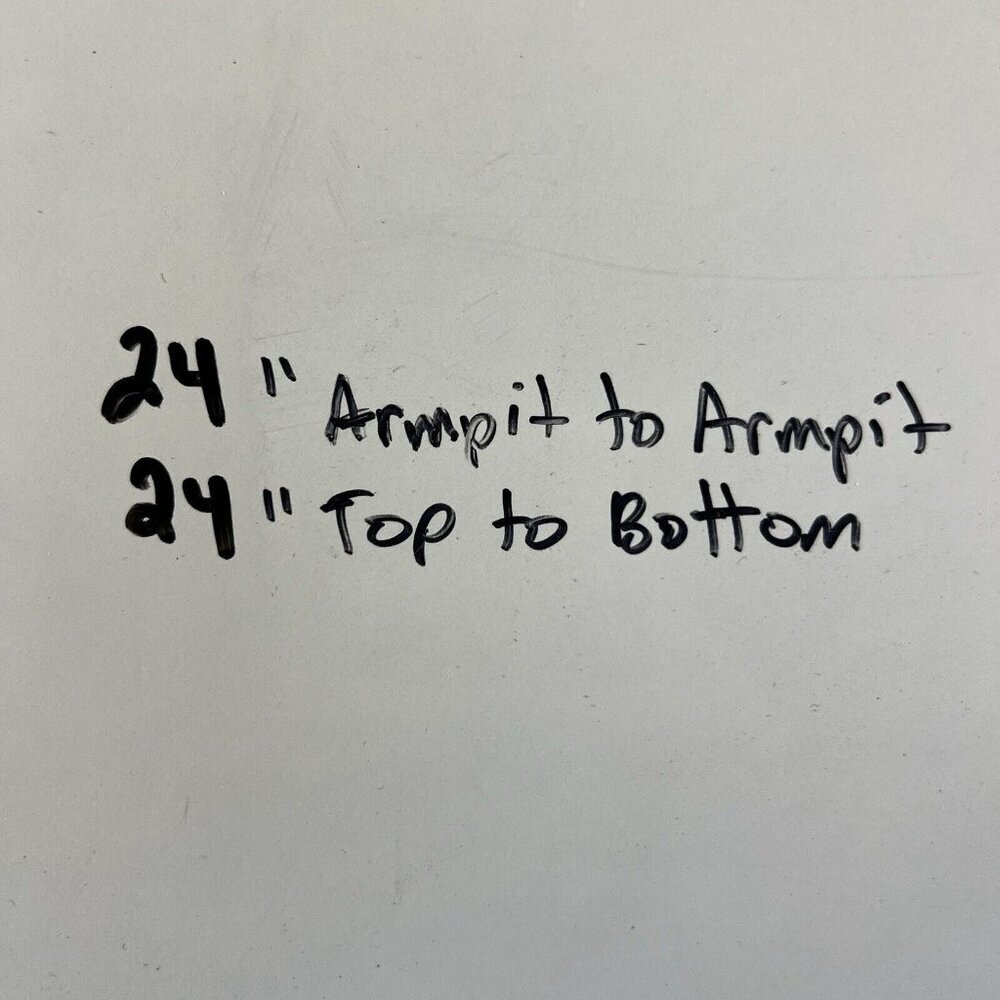 24" Armpit to Armpit
24" Top to Bottom